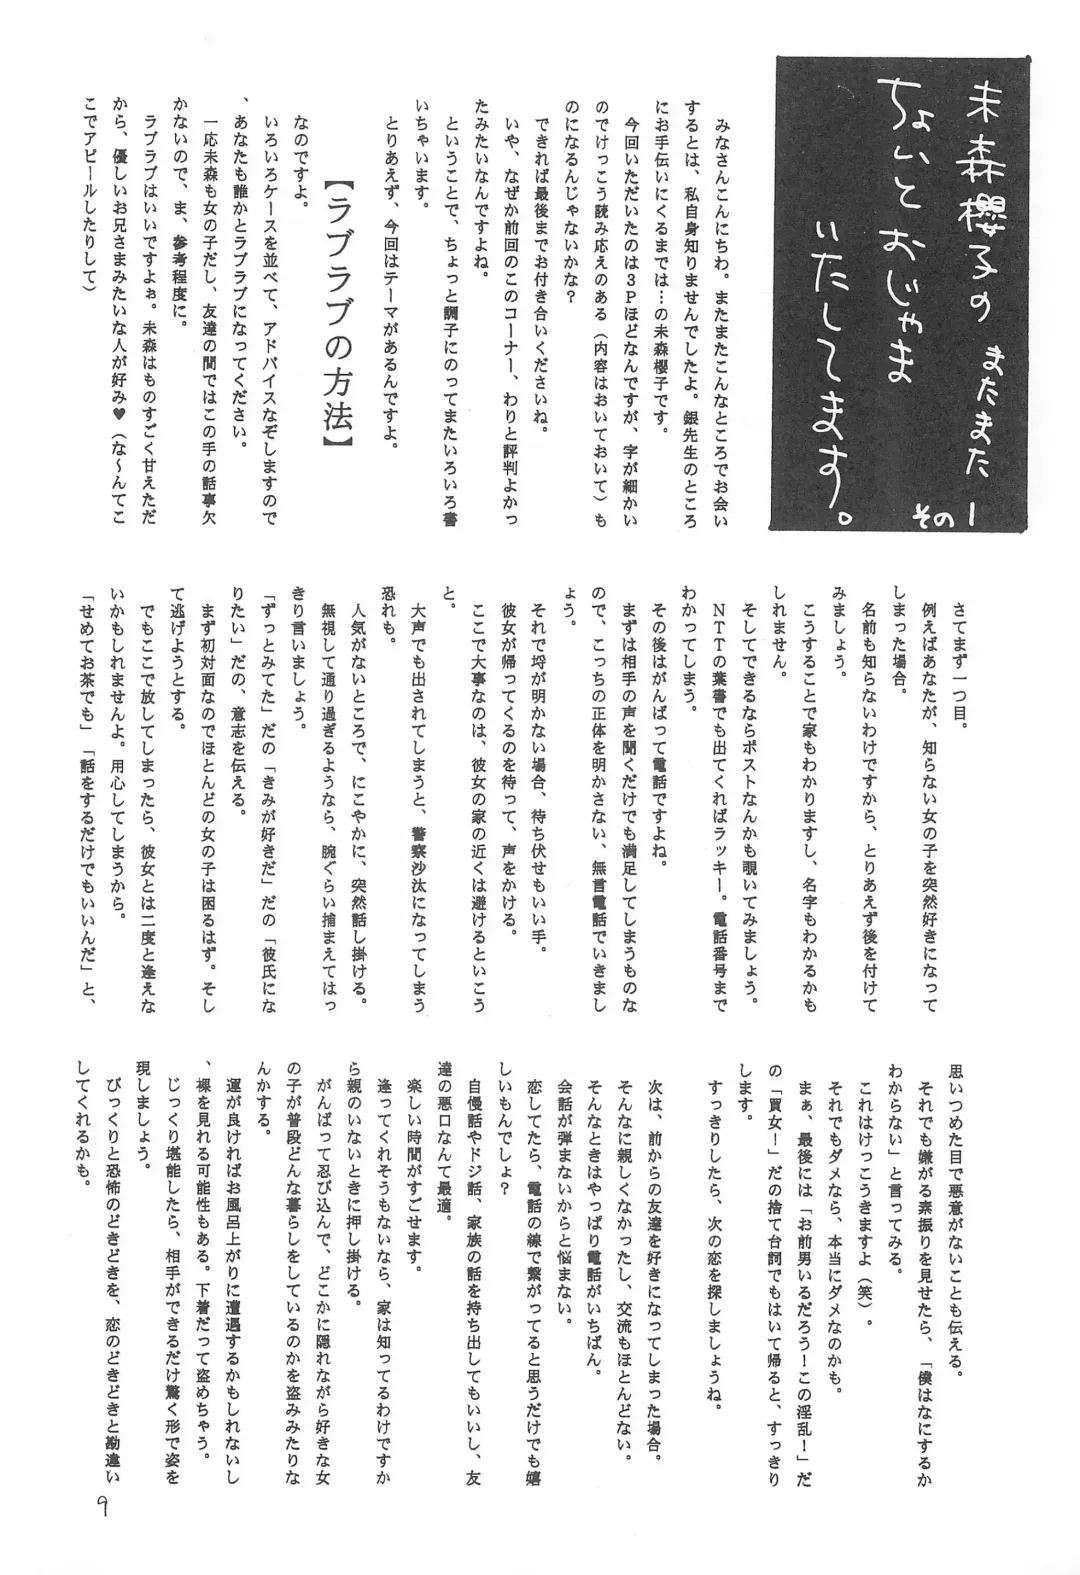 未森櫻子の またまた
ちょいとおじゃま
いたしてます。
その1
みなさんこんにちわ。またまたこんなところでお会い
するとは、私自身知りませんでしたよ。銀先生のところ
にお手伝いにくるまでは…の未森櫻子です。
今回いただいたのは3Pほどなんですが、字が細かい
のでけっこう読み応えのある(内容はおいておいて)も
のになるんじゃないかな?
できれば最後までお付き合いくださいね。
いや、なぜか前回のこのコーナー、わりと評判よかっ
たみたいなんですよね。
ということで、ちょっと調子にのってまたいろいろ書
いちゃいます。
とりあえず、今回はテーマがあるんですよ。
【ラブラブの方法】
なのですよ。
いろいろケースを並べて、アドバイスなぞしますので
、あなたも誰かとラブラブになってください。
一応未森も女の子だし、友達の間ではこの手の話事欠
かないので、ま、参考程度に。
ラブラブはいいですよぉ。未森はものすごく甘えただ
から、優しいお兄さまみたいな人が好み♥(な〜んてこ
こでアピールしたりして)
さてまず一つ目。
例えばあなたが、知らない女の子を突然好きになって
しまった場合。
名前も知らないわけですから、とりあえず後を付けて
みましょう。
こうすることで家もわかりますし、名字もわかるかも
しれません。
そしてできるならポストなんかも覗いてみましょう。
NTTの葉書でも出てくればラッキー。電話番号まで
わかってしまう。
その後はがんばって電話ですよね。
まずは相手の声を聞くだけでも満足してしまうものな
ので、こっちの正体を明かさない、無言電話でいきまし
ょう。
それで埒が明かない場合、待ち伏せもいい手。
彼女が帰ってくるのを待って、声をかける。
ここで大事なのは、彼女の家の近くは避けるといこう
と。
大声でも出されてしまうと、警察沙汰になってしまう
恐れも。
人気がないところで、にこやかに、突然話し掛ける。
無視して通り過ぎるようなら、腕ぐらい捕まえてはっ
きり言いましょう。
「ずっとみてた」だの「きみが好きだ」だの「彼氏にな
りたい」だの、意志を伝える。
まず初対面なのでほとんどの女の子は困るはず。そし
て逃げようとする。
でもここで放してしまったら、彼女とは二度と逢えな
いかもしれませんよ。用心してしまうから。
「せめてお茶でも」「話をするだけでもいいんだ」と、
思いつめた目で悪意がないことも伝える。
それでも嫌がる素振りを見せたら、「僕はなにするか
わからない」と言ってみる。
これはけっこうきますよ(笑)。
それでもダメなら、本当にダメなのかも。
まぁ、最後には「お前男いるだろう!この淫乱!」だ
の「買女!」だの捨て台詞でもはいて帰ると、すっきり
します。
すっきりしたら、次の恋を探しましょうね。
次は、前からの友達を好きになってしまった場合。
そんなに親しくなかったし、交流もほとんどない。
そんなときはやっぱり電話がいちばん。
会話が弾まないからと悩まない。
恋してたら、電話の線で繋がってると思うだけでも嬉
しいもんでしょ?
自慢話やドジ話、家族の話を持ち出してもいいし、友
達の悪口なんて最適。
楽しい時間がすごせます。
逢ってくれそうもないなら、家は知ってるわけですか
ら親のいないときに押し掛ける。
がんばって忍び込んで、どこかに隠れながら好きな女
の子が普段どんな暮らしをしているのかを盗みみたりな
んかする。
運が良ければお風呂上がりに遭遇するかもしれないし
、裸を見れる可能性もある。下着だって盗めちゃう。
じっくり堪能したら、相手ができるだけ驚く形で姿を
現しましょう。
びっくりと恐怖のどきどきを、恋のどきどきと勘違い
してくれるかも。
9